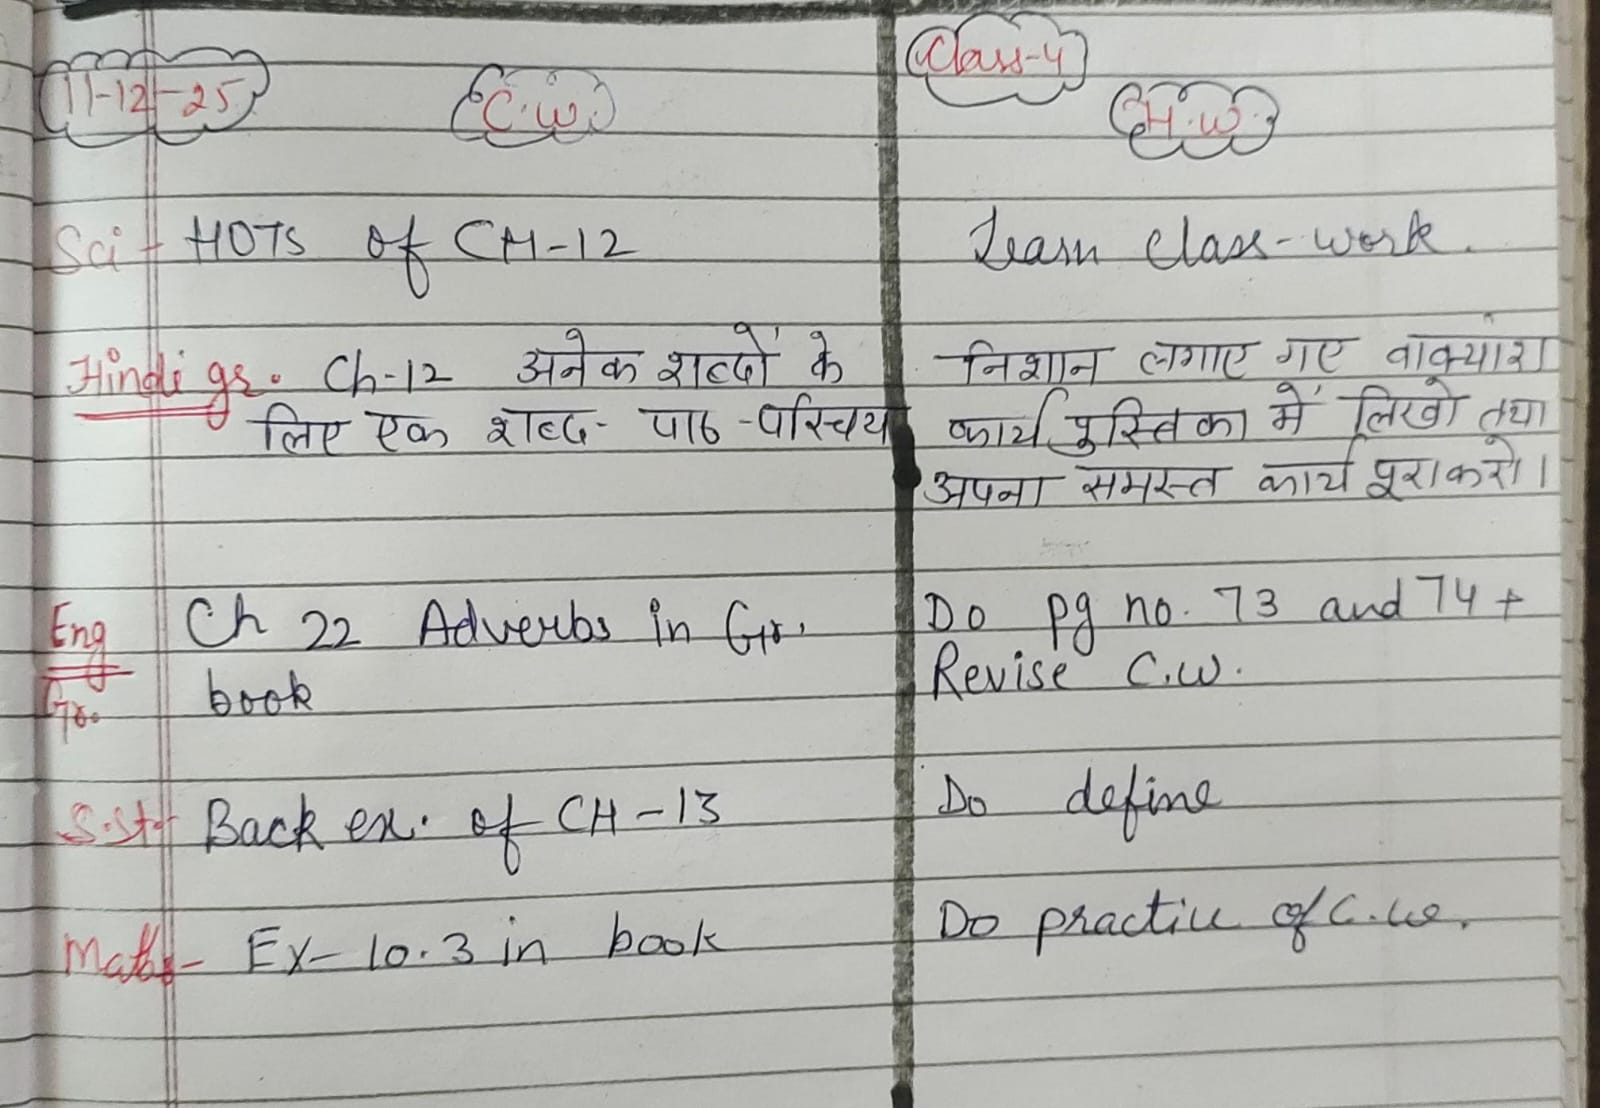 Class-4
11-12-25 C.W. H.W.
Sci - HOTS of CH-12 Learn class-work.
Hindi gr. Ch-12 अनेक शब्दों के निशान लगाए गए वाक्यांश
लिए एक शब्द - पाठ - परिचय कार्य पुस्तिका में लिखो तथा
अपना समस्त कार्य पूरा करो।
Eng Ch 22 Adverbs in Gr. Do pg no. 73 and 74 +
Gr. book Revise C.W.
S.St - Back ex. of CH-13 Do define
Maths - Ex- 10.3 in book Do practice of C.W.